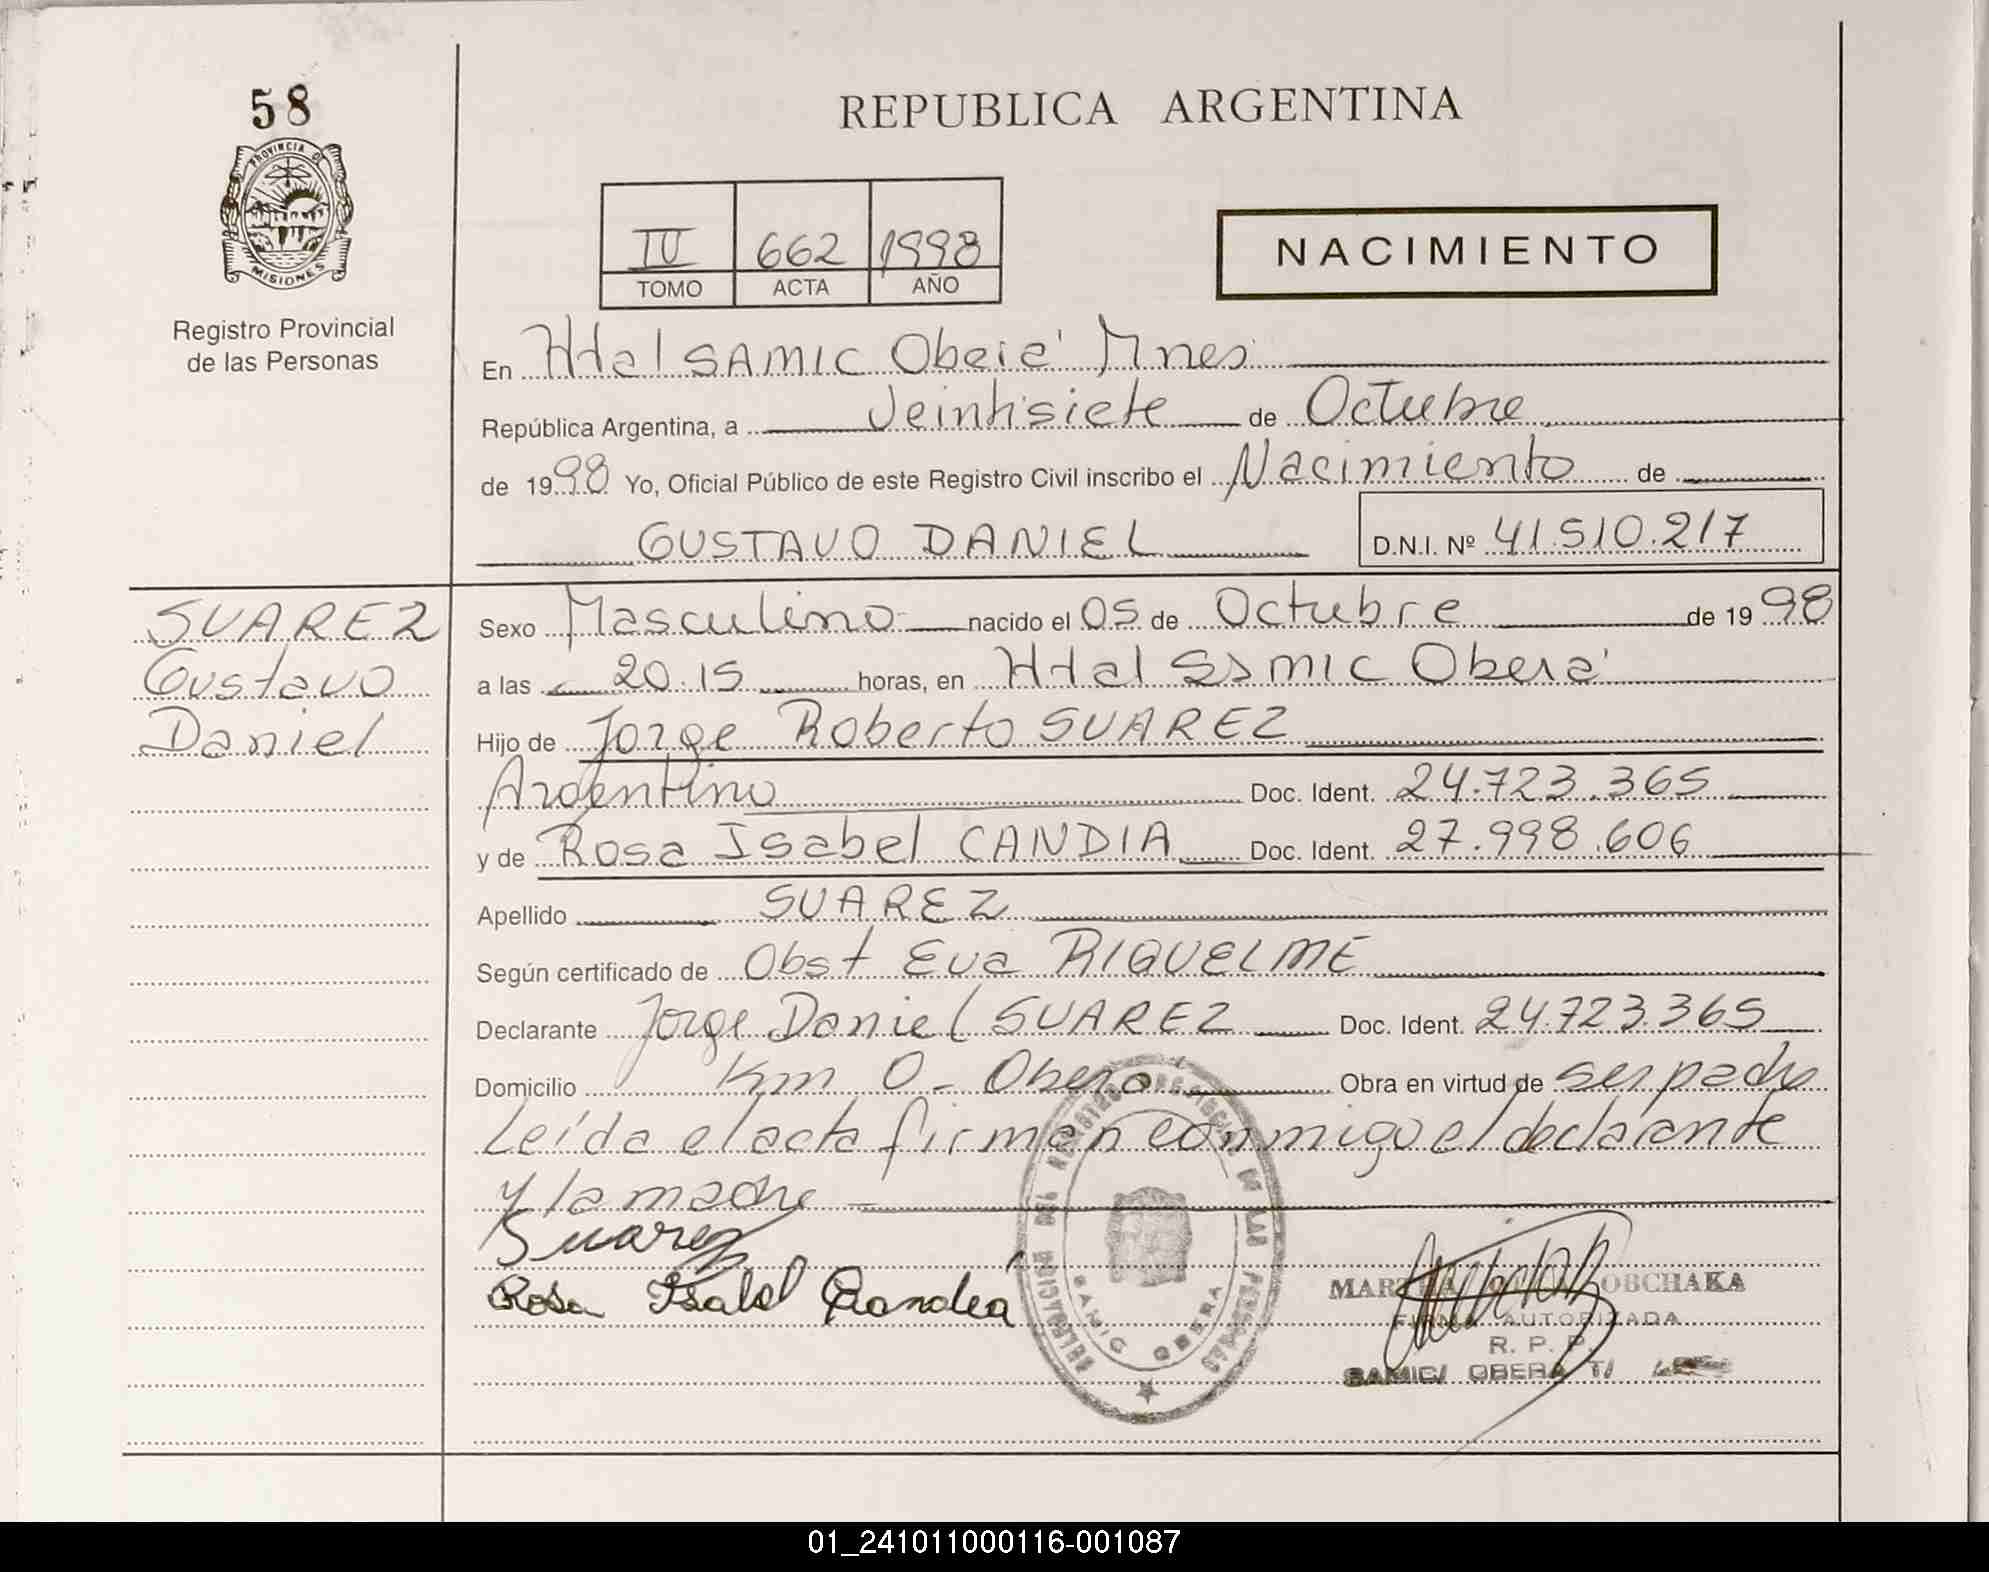 58
REPUBLICA ARGENTINA
PROVINCIA D
MISIONES
Registro Provincial
de las Personas
IV 662 1998
TOMO ACTA AÑO
NACIMIENTO
En Htal SAMIC Oberá Mnes
República Argentina, a Veintisiete de Octubre
de 1998 Yo, Oficial Público de este Registro Civil inscribo el Nacimiento de
GUSTAVO DANIEL D.N.I. Nº 41.510.217
SUAREZ
Gustavo
Daniel
Sexo Masculino nacido el 05 de Octubre de 1998
a las 20.15 horas, en Htal SAMIC Oberá
Hijo de Jorge Roberto SUAREZ
Argentino Doc. Ident. 24.723.365
y de Rosa Isabel CANDIA Doc. Ident. 27.998.606
Apellido SUAREZ
Según certificado de Obst Eva RIQUELME
Declarante Jorge Daniel SUAREZ Doc. Ident. 24.723.365
Domicilio Km 0 - Oberá Obra en virtud de ser padre
Leída el acta firman conmigo el declarante
y la madre
Suarez
Rosa Isabel Candia
DELEGACION DEL REGISTRO PROVINCIAL DE LAS PERSONAS
SAMIC OBERA
OBCHAKA
FIRMA AUTORIZADA
R. P. P.
SAMIC/ OBERA T/
01_241011000116-001087